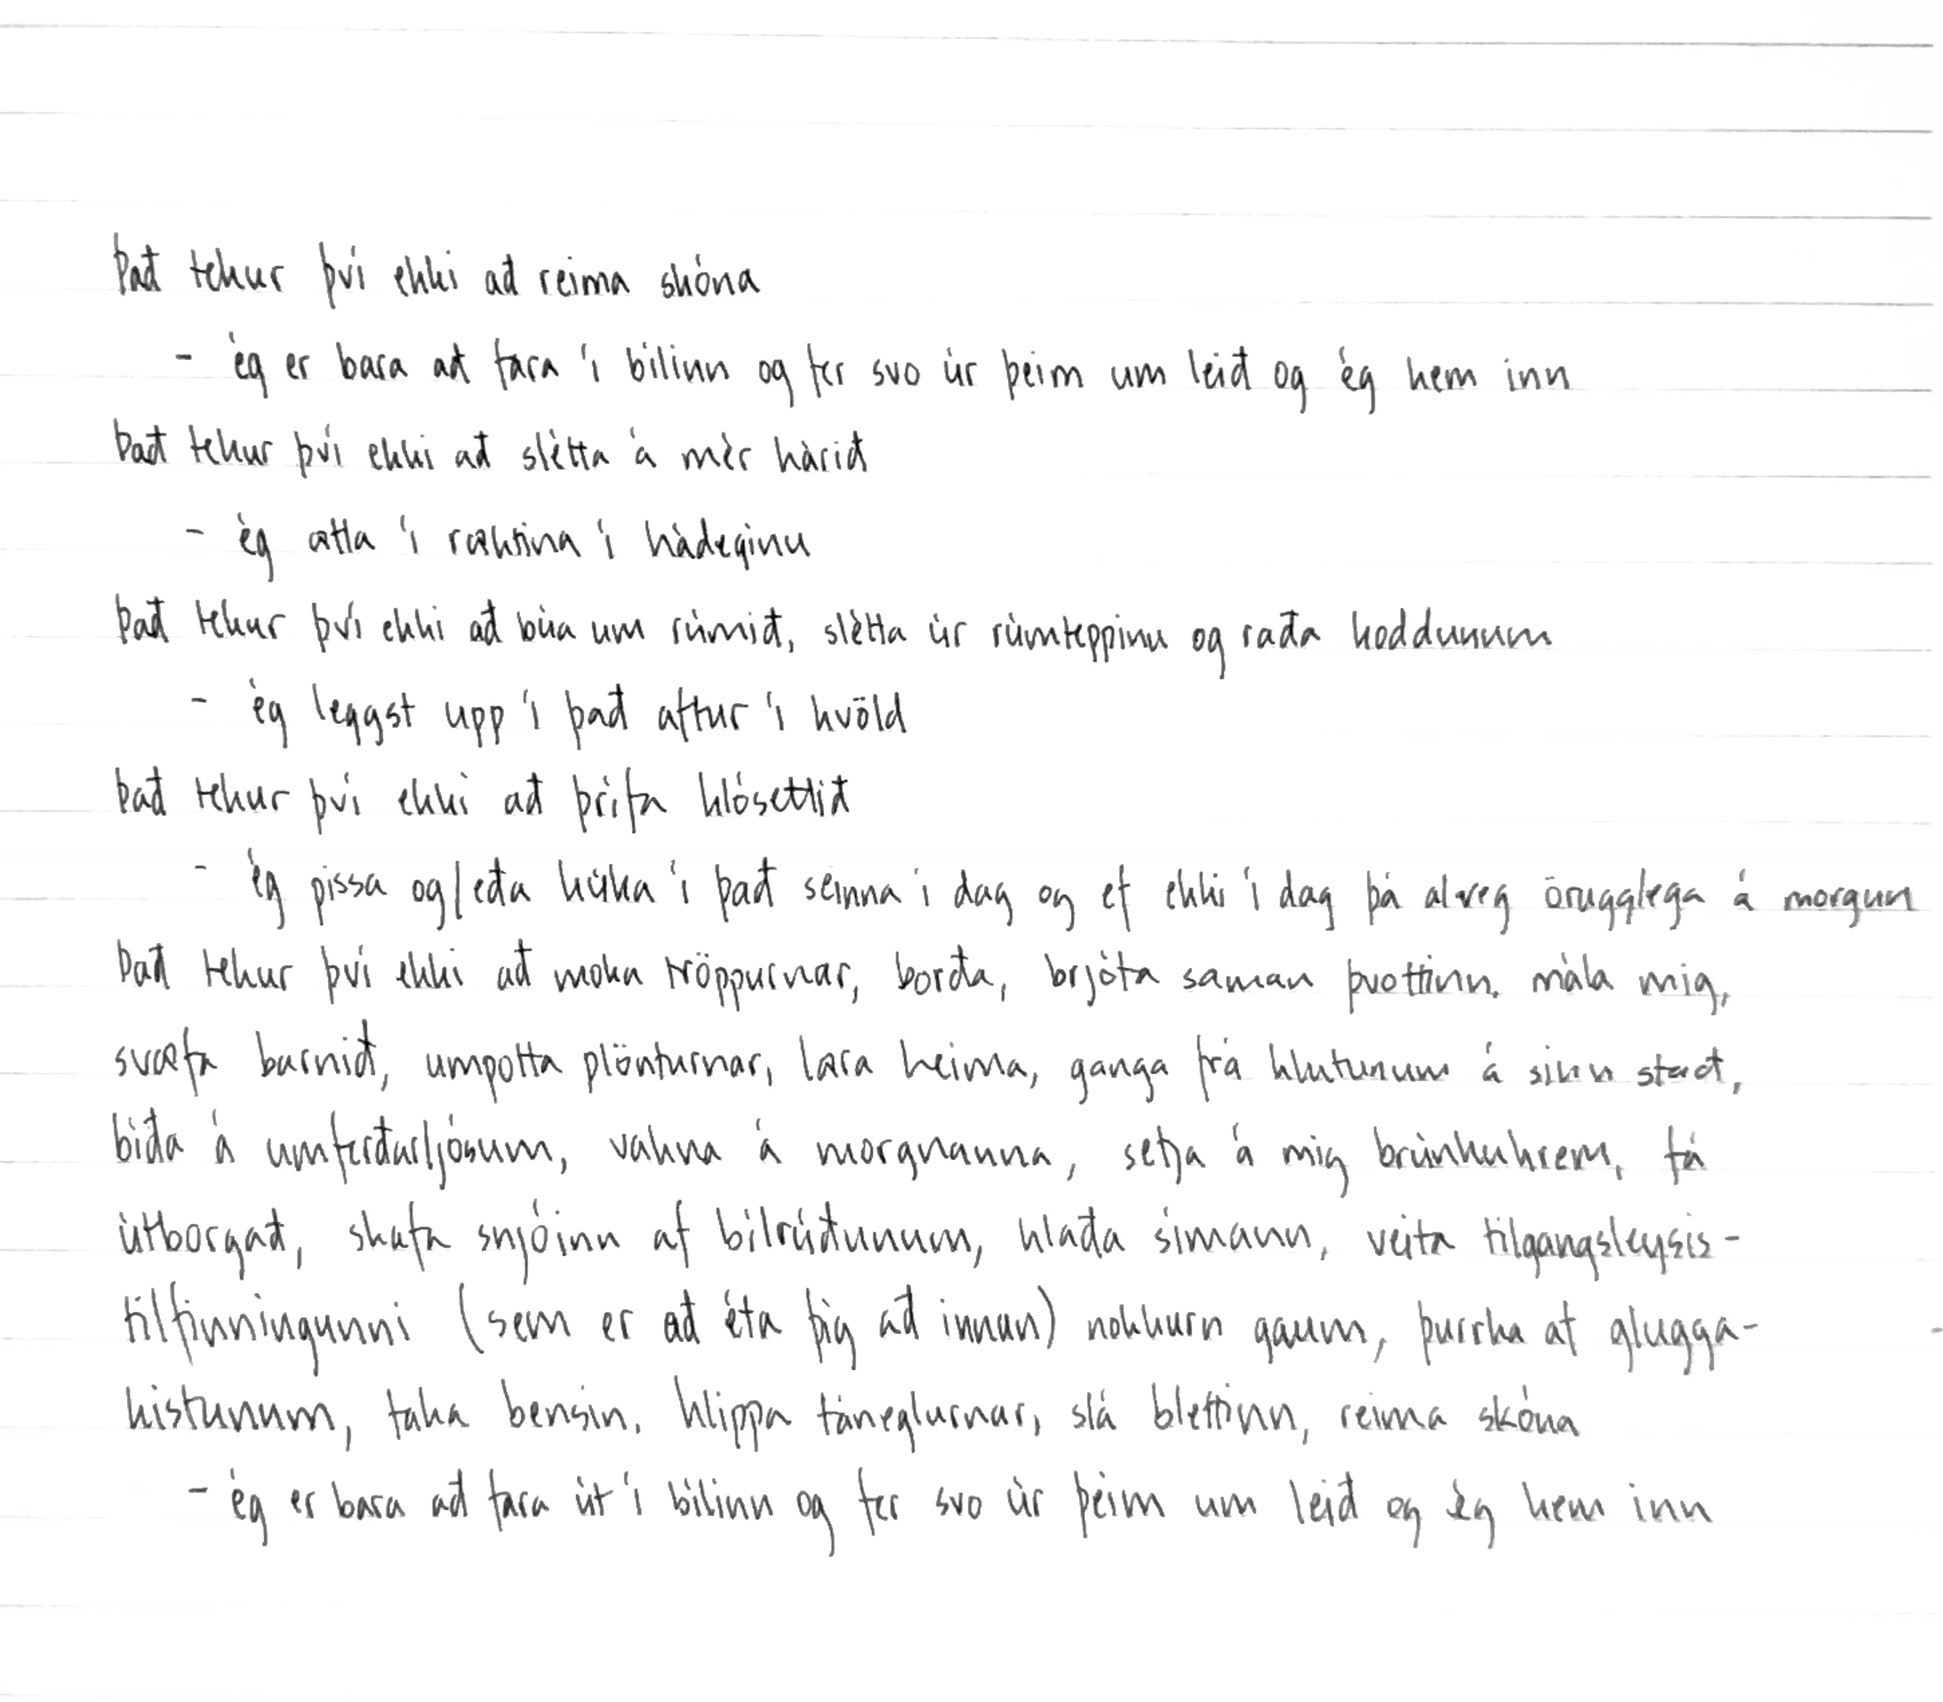 Það tekur því ekki að reima skóna
- ég er bara að fara í bílinn og fer svo úr þeim um leið og ég kem inn
Það tekur því ekki að slétta á mér hárið
- ég ætla í ræktina í hádeginu
Það tekur því ekki að búa um rúmið, slétta úr rúmteppinu og raða koddunum
- ég leggst upp í það aftur í kvöld
Það tekur því ekki að þrífa klósettið
- ég pissa og/eða kúka í það seinna í dag og ef ekki í dag þá alveg örugglega á morgun
Það tekur því ekki að moka tröppurnar, borða, brjóta saman þvottinn, mála mig,
svæfa barnið, umpotta plönturnar, læra heima, ganga frá hlutunum á sinn stað,
bíða á umferðarljósum, vakna á morgnanna, setja á mig brúnkukrem, fá
útborgað, skafa snjóinn af bílrúðunum, hlaða símann, veita tilgangsleysis-
tilfinningunni (sem er að éta þig að innan) nokkurn gaum, þurrka af glugga-
kistunum, taka bensín, klippa táneglurnar, slá blettinn, reima skóna
- ég er bara að fara út í bílinn og fer svo úr þeim um leið og ég kem inn